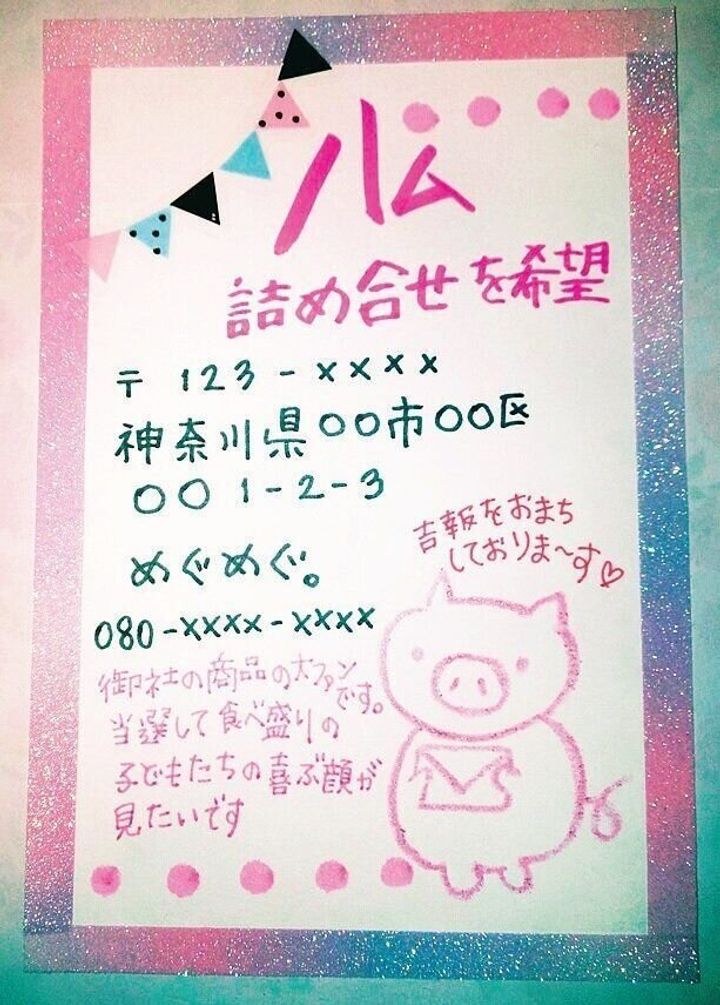 ハム
詰め合せを希望
〒 123-××××
神奈川県〇〇市〇〇区
〇〇 1-2-3
めぐめぐ。
080-××××-××××
吉報をおまち
しておりま〜す♡
御社の商品の大ファン
です。
当選して食べ盛りの
子どもたちの喜ぶ顔が
見たいです